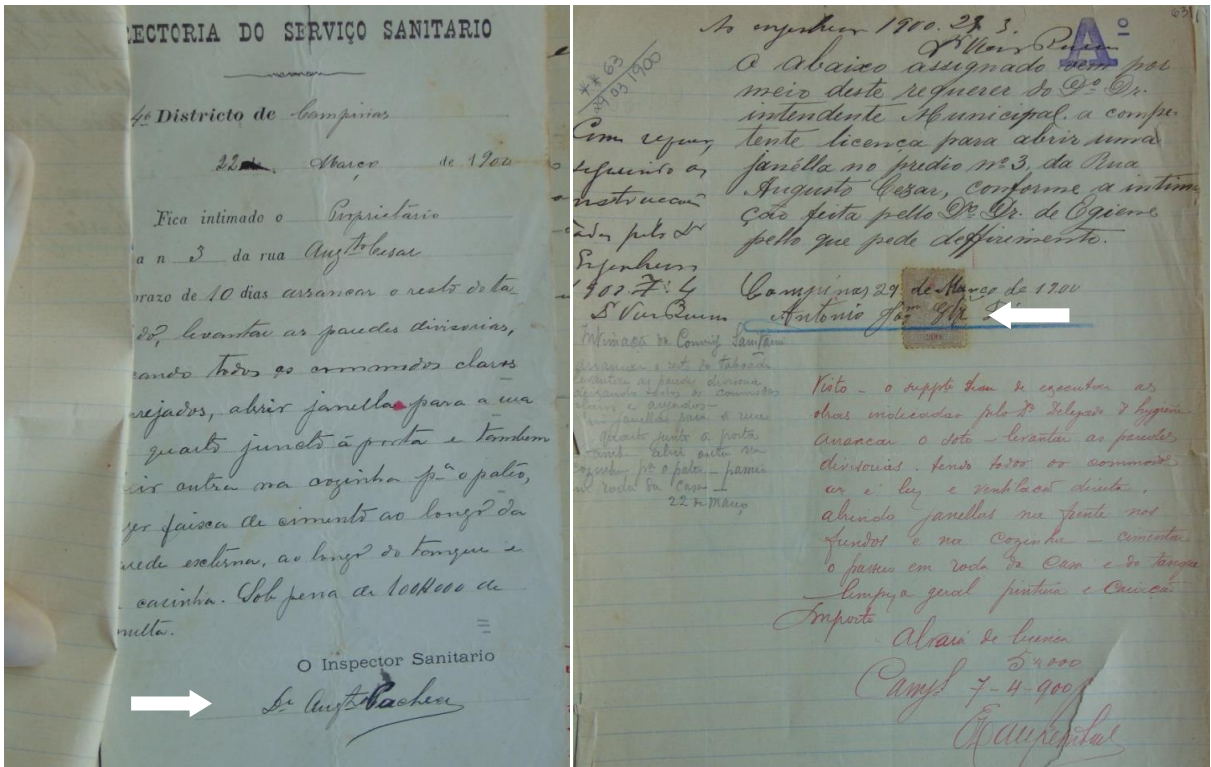 RECTORIA DO SERVIÇO SANITARIO
4º Districto de Campinas
22 Março de 1900
Fica intimado o Proprietário
a n 3 da rua Augto Cesar
prazo de 10 dias arrancar o resto do ta-
do, levantar as paredes divisorias,
cando todos os commodos claros
arejados, abrir janella para a rua
quarto juncto á porta e tambem
rir outra na cozinha pa o patéo,
zer faisca de cimento ao longo da
rede externa, ao longo do tanque e
casinha. Sob pena de 100$000 de
multa.
O Inspector Sanitario
Dr Augto Pacheco
63
Ao engenheiro 1900. 29. 3.
Aº
** 63
29 03 1900
O abaixo assignado vem por
meio deste requerer do Dº Dr.
intendente Municipal a compe-
tente licença para abrir uma
janélla no predio nº 3, da Rua
Augusto Cezar, conforme a intim
ção feita pello Dº Dr. de Ogiene
pello que pede defferimento.
Campinas 29 de Março de 1900
Antonio
Como requer,
seguindo as
nstrucções
adas pelo Dr
Engenheiro
902. 7. 4
Intimação da Comiss Sanitari
arrancar o resto do taboado
levantar as paredes divisoria
deixando todos os commodos
claros e arejados
janellas para a rua
quarto junto a porta
tamb. abrir outra na
cozinha pª o pateo - passeio
em roda da casa
22 de Março
Visto - o suppte tem de executar as
obras indicadas pelo Dr Delegado d hygiene
arrancar o soto - levantar as paredes
divisorias. tendo todos os commodos
ar e luz e ventilacã directa.
abrindo janellas na frente nos
fundos e na cozinha - cimentar
o passeio em roda da casa e do tanque
limpeza geral pintura e caiação
Importe
Alvará de licença
5$000
Camps 7-4-900